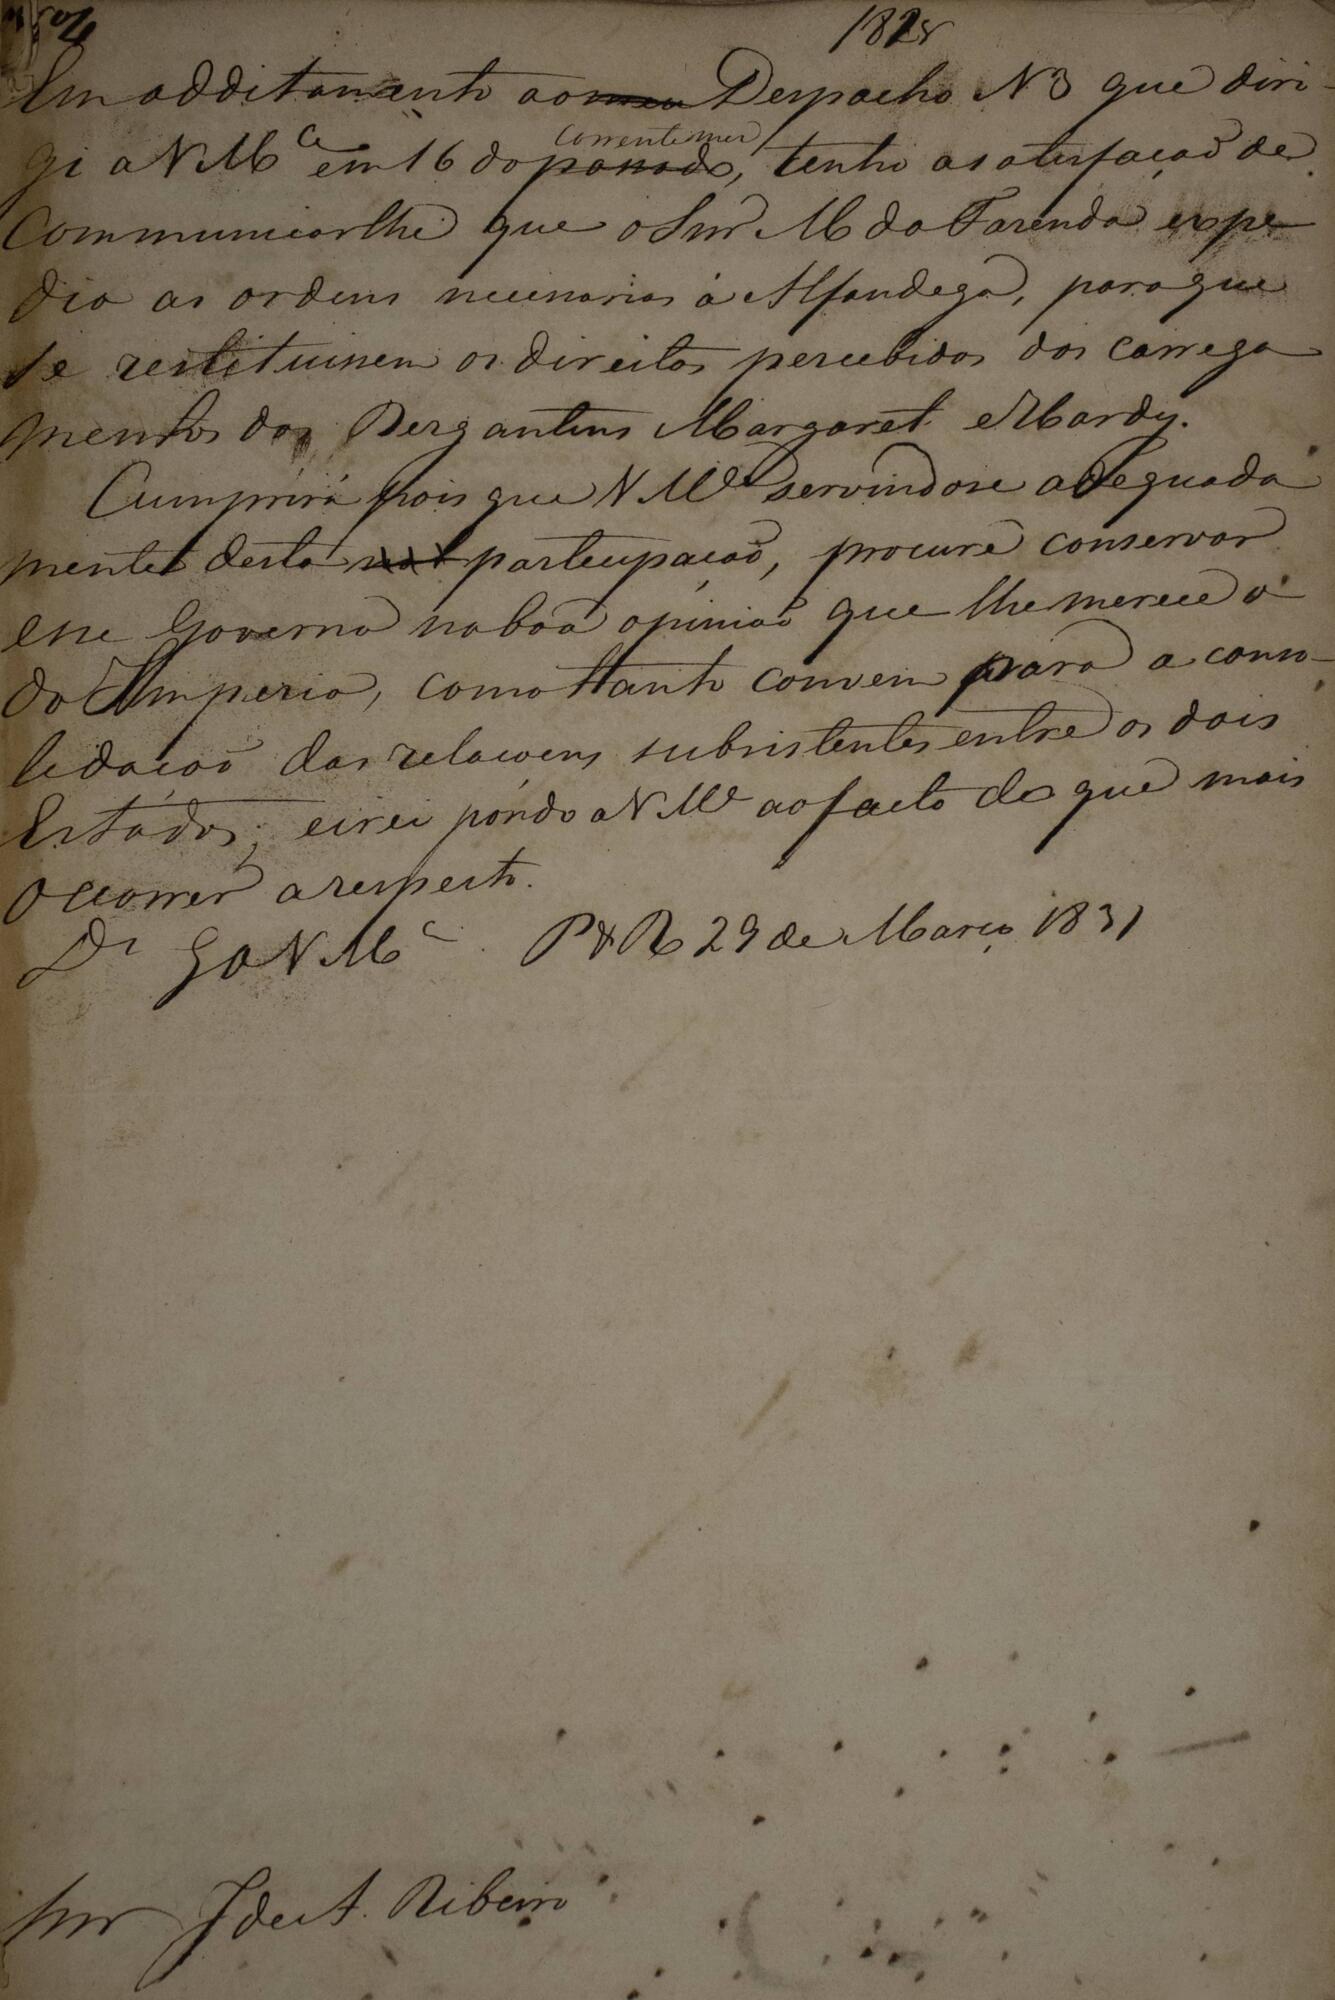 182
Em additamento ao meu Despacho N 3 que diri-
gi a V Mce em 16 do passado, tenho a satisfação de
corrente mez
Communicarlhe que o Snr M da Fazenda expe-
dio as ordens necessarias á Alfandega, para que
se restituissem os direitos percebidos dos carrega
mentos dos Bergantins Margaret e Hardy.
Cumprirá pois que V Mce servindose adequada
mente desta participação, procure conservar
esse Governo na boa opinião que lhe merece o
do Imperio, como tanto convem para a conso-
lidação das relaçoens subsistentes entre os dois
Estados, e irei pondo a V Mce ao facto do que mais
occorrer a respeito.
Ds G a V Mce P R 29 de Março 1831
Snr J de A. Ribeiro